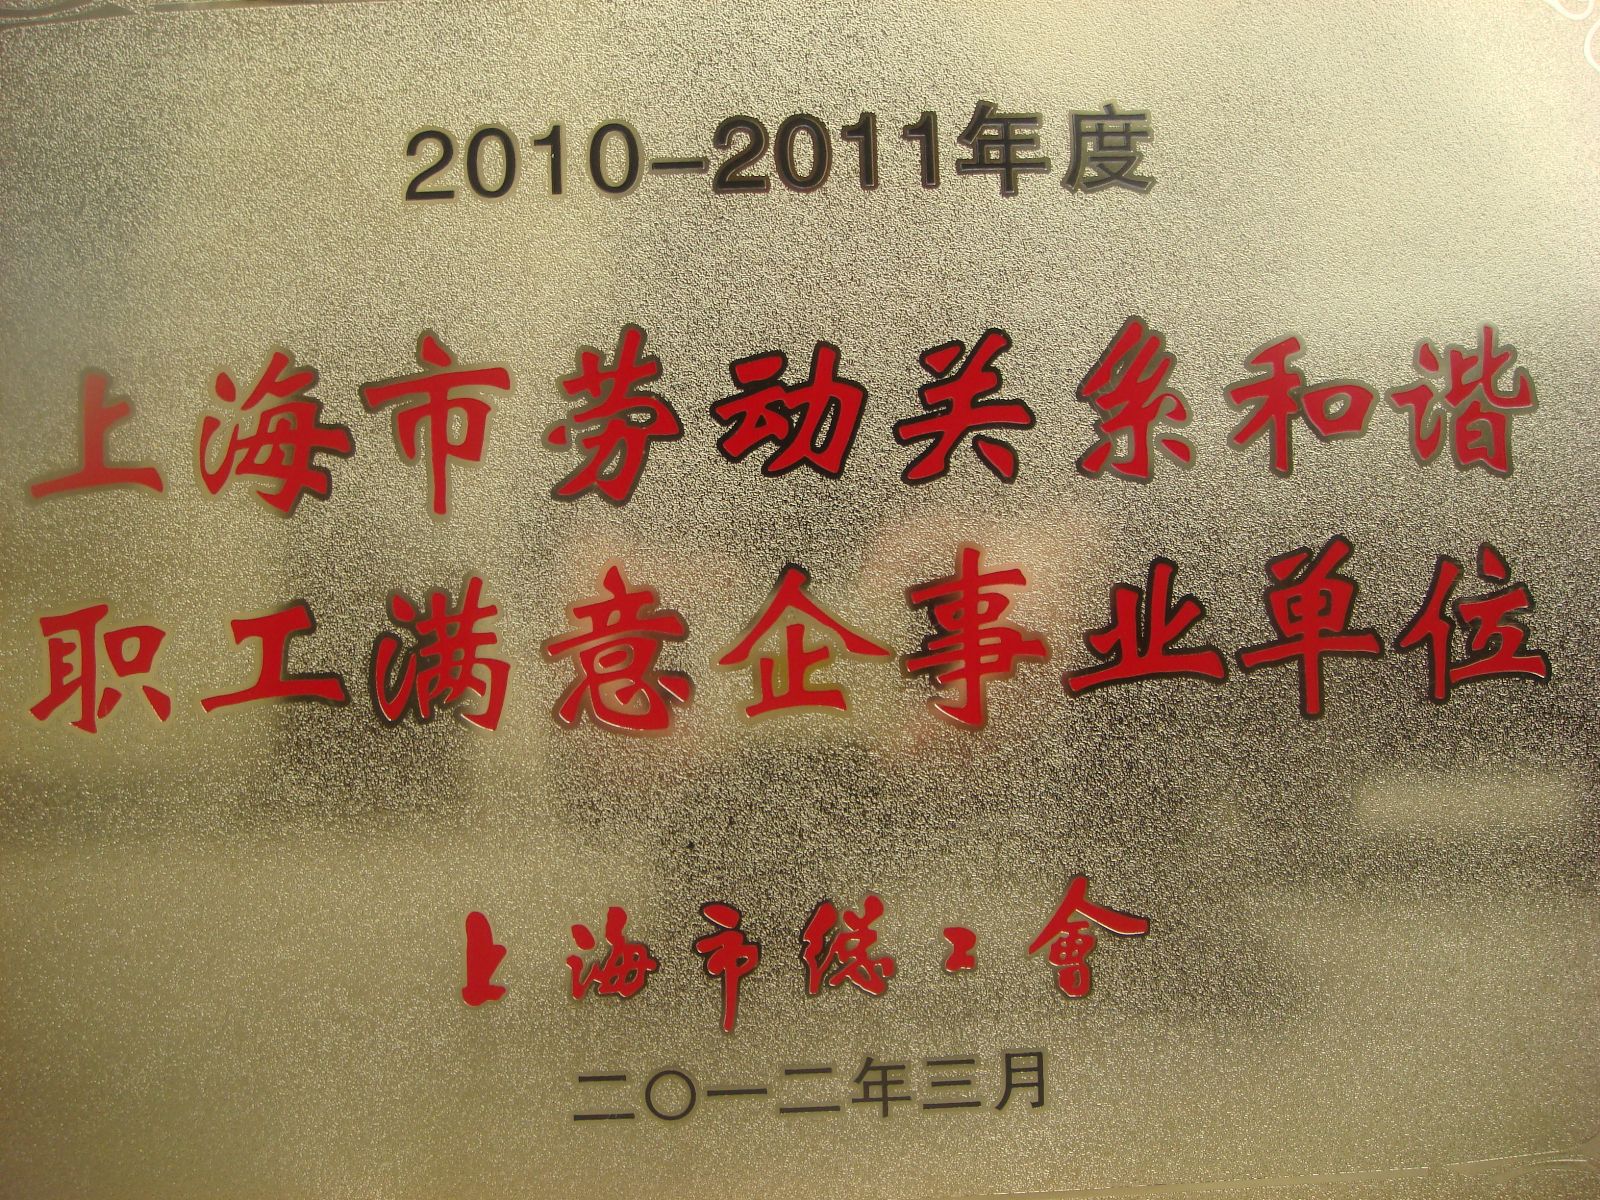 2010-2011年度
上海市劳动关系和谐
职工满意企事业单位
上海市总工會
二〇一二年三月